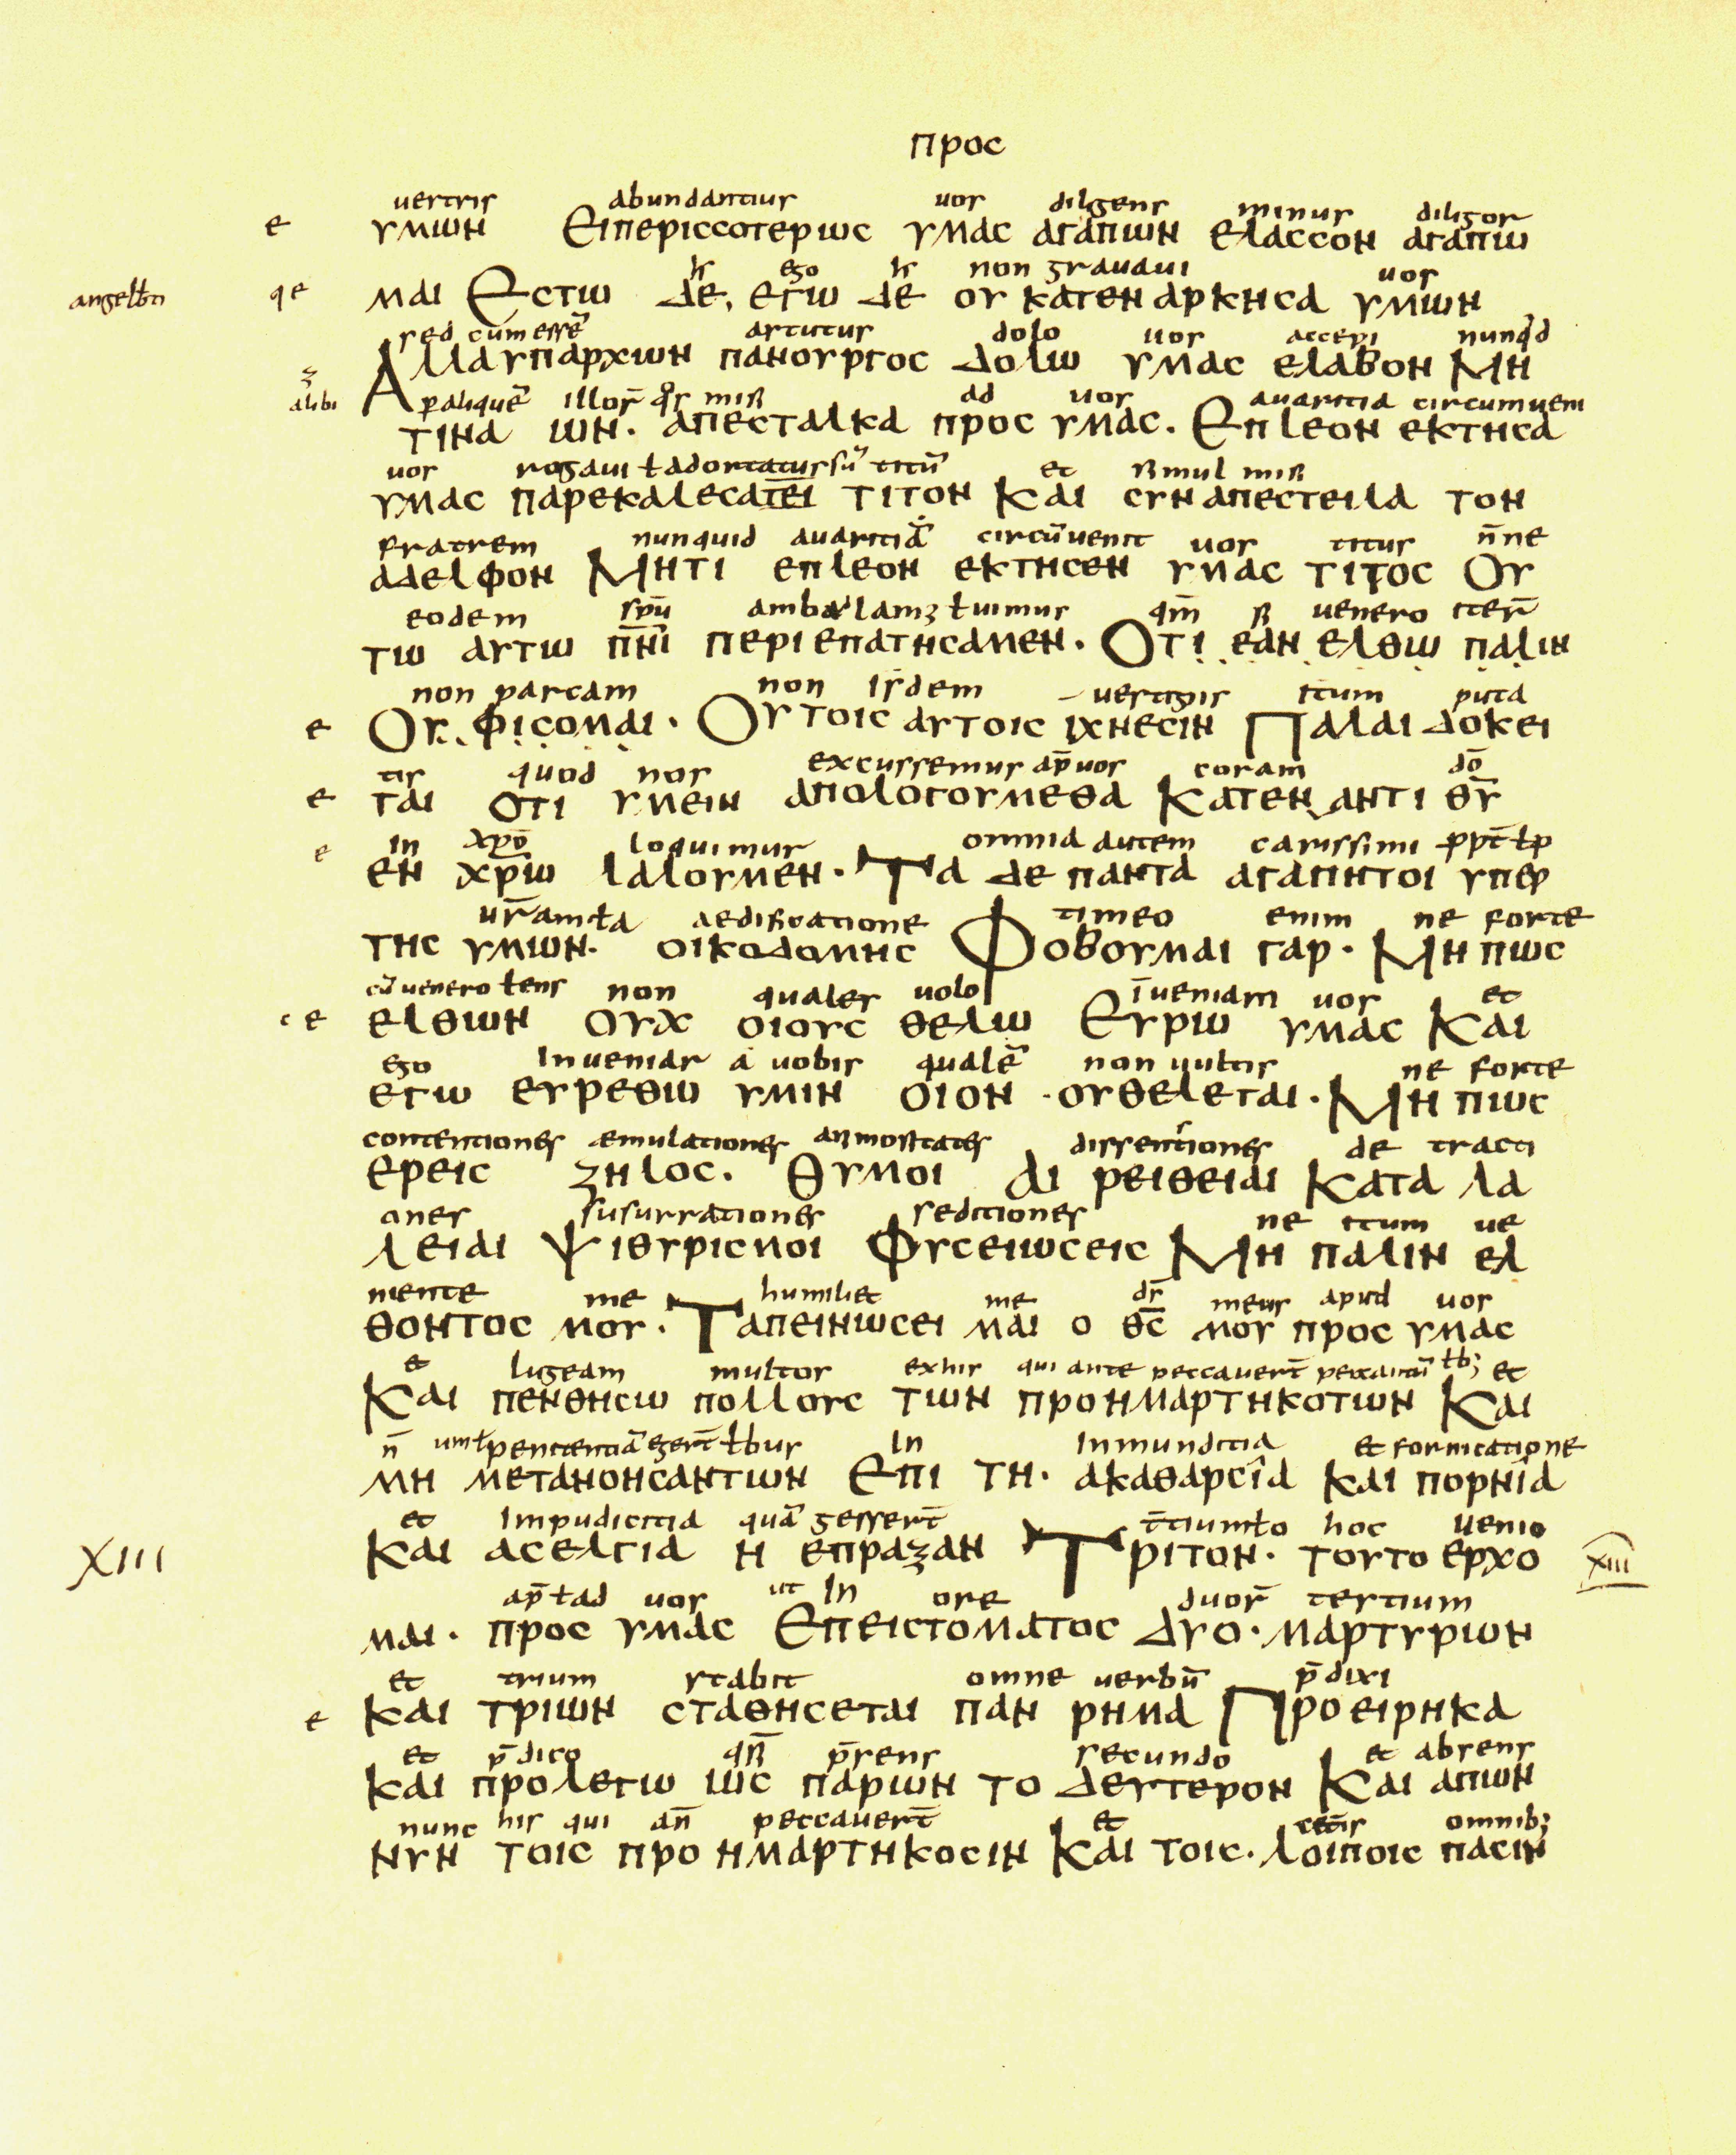 προс
uestris abundantius uos diligens minus diligor
e υμων Ειπεριссοτερωс υμαс αγαπων ελαссον αγαπω
h̅ ego h̅ non grauaui uos
qe μαι Εсτω δε, εγω δε ου κατεναρκηсα υμων
sed cum essē astutus dolo uos accepi nunq̄d
Αλλαυπαρχων πανουργοс Δολω υμαс ελαβον Μη
alibi p aliquē illoꝝ misi ad uos auaritia circumuem
τινα ων. απεсταλκα προс υμαс. Επλεον εκτηсα
uos rogaui ł adortatus sū titū et simul misi
υμαс παρεκαλεсατει τιτον Και сυναπεсτειλα τον
fratrem nunquid auaritiā circūuenit uos titus n̄ne
αδελφον Μητι επλεον εκτηсεν υμαс τιτοс Ου
eodem sp̄u ambulam ł uimus qm̄ si uenero iter̄
τω αυτω π̅ν̅ι περιεπατηсαμεν. Οτι εαν ελθω παλιν
non parcam non iisdem uestigiis itum puta
e Ου. φιсομαι. Ουτοιс αυτοιс ιχνεсιν Παλαι δοκει
tis quod nos excussemus ap̄ uos coram dō
e ται οτι υμειν απολογουμεθα Κατεναντι θ̅υ̅
in xp̄o loquimur omnia autem carissimi pp̄t ł p
e εν χρ̅ω λαλουμεν. Τα δε παντα αγαπητοι υπερ
ur̄am ł a aedificatione timeo enim ne forte
τηс υμων. οικοδομηс Φοβουμαι γαρ. Μη πωс
cū uenero ł ens non quales uolo īueniam uos et
c e ελθων ουχ οιουс θελω Ευρω υμαс Και
ego inueniar a uobis qualē non uultis ne forte
εγω ευρεθω υμιν οιον ουθελεται. Μη πωс
contentiones æmulationes animositates dissentiones de tracti
ερειс ζηλοс. θυμοι αι ρειθειαι Κατα λα
ones susurrationes seditiones ne itum ue
λειαι Ψιθυριсμοι Φυсειωсειс Μη παλιν ελ
niente me humiliet me ds̄ meus apud uos
θοντοс μου. Ταπεινωсει μαι ο θ̅с̅ μου προс υμαс
et lugeam multos ex his qui ante peccauer̄t peccantiū ł b; et
Και πενθηсω πολλουс των προημαρτηκοτων Και
n̄ penitentiā eger̄t ł bus in inmunditia et fornicatione
μη μετανοηсαντων Επι τη. ακαθαρсια και πορνια
et impudicitia quā gesser̄t t̄tium ł o hoc uenio
XIII και αсελγια η επραζαν Τριτον. τουτο ερχο XIII
ap̄ ł ad uos ut in ore duor̄ tertium
μαι. προс υμαс Επειсτοματοс Δυο. μαρτυρων
et trium stabit omne uerbū p̄dixi
e και τριων сταθηсεται παν ρημα Προειρηκα
et p̄dico qs̄i p̄sens secundo et absens
και προλεγω ωс παρων το Δευτερον Και απων
nunc his qui an̄ peccauer̄t et cet̄is omnib;
νυν τοιс προ ημαρτηκοсιν Και τοιс. λοιποιс παсιν